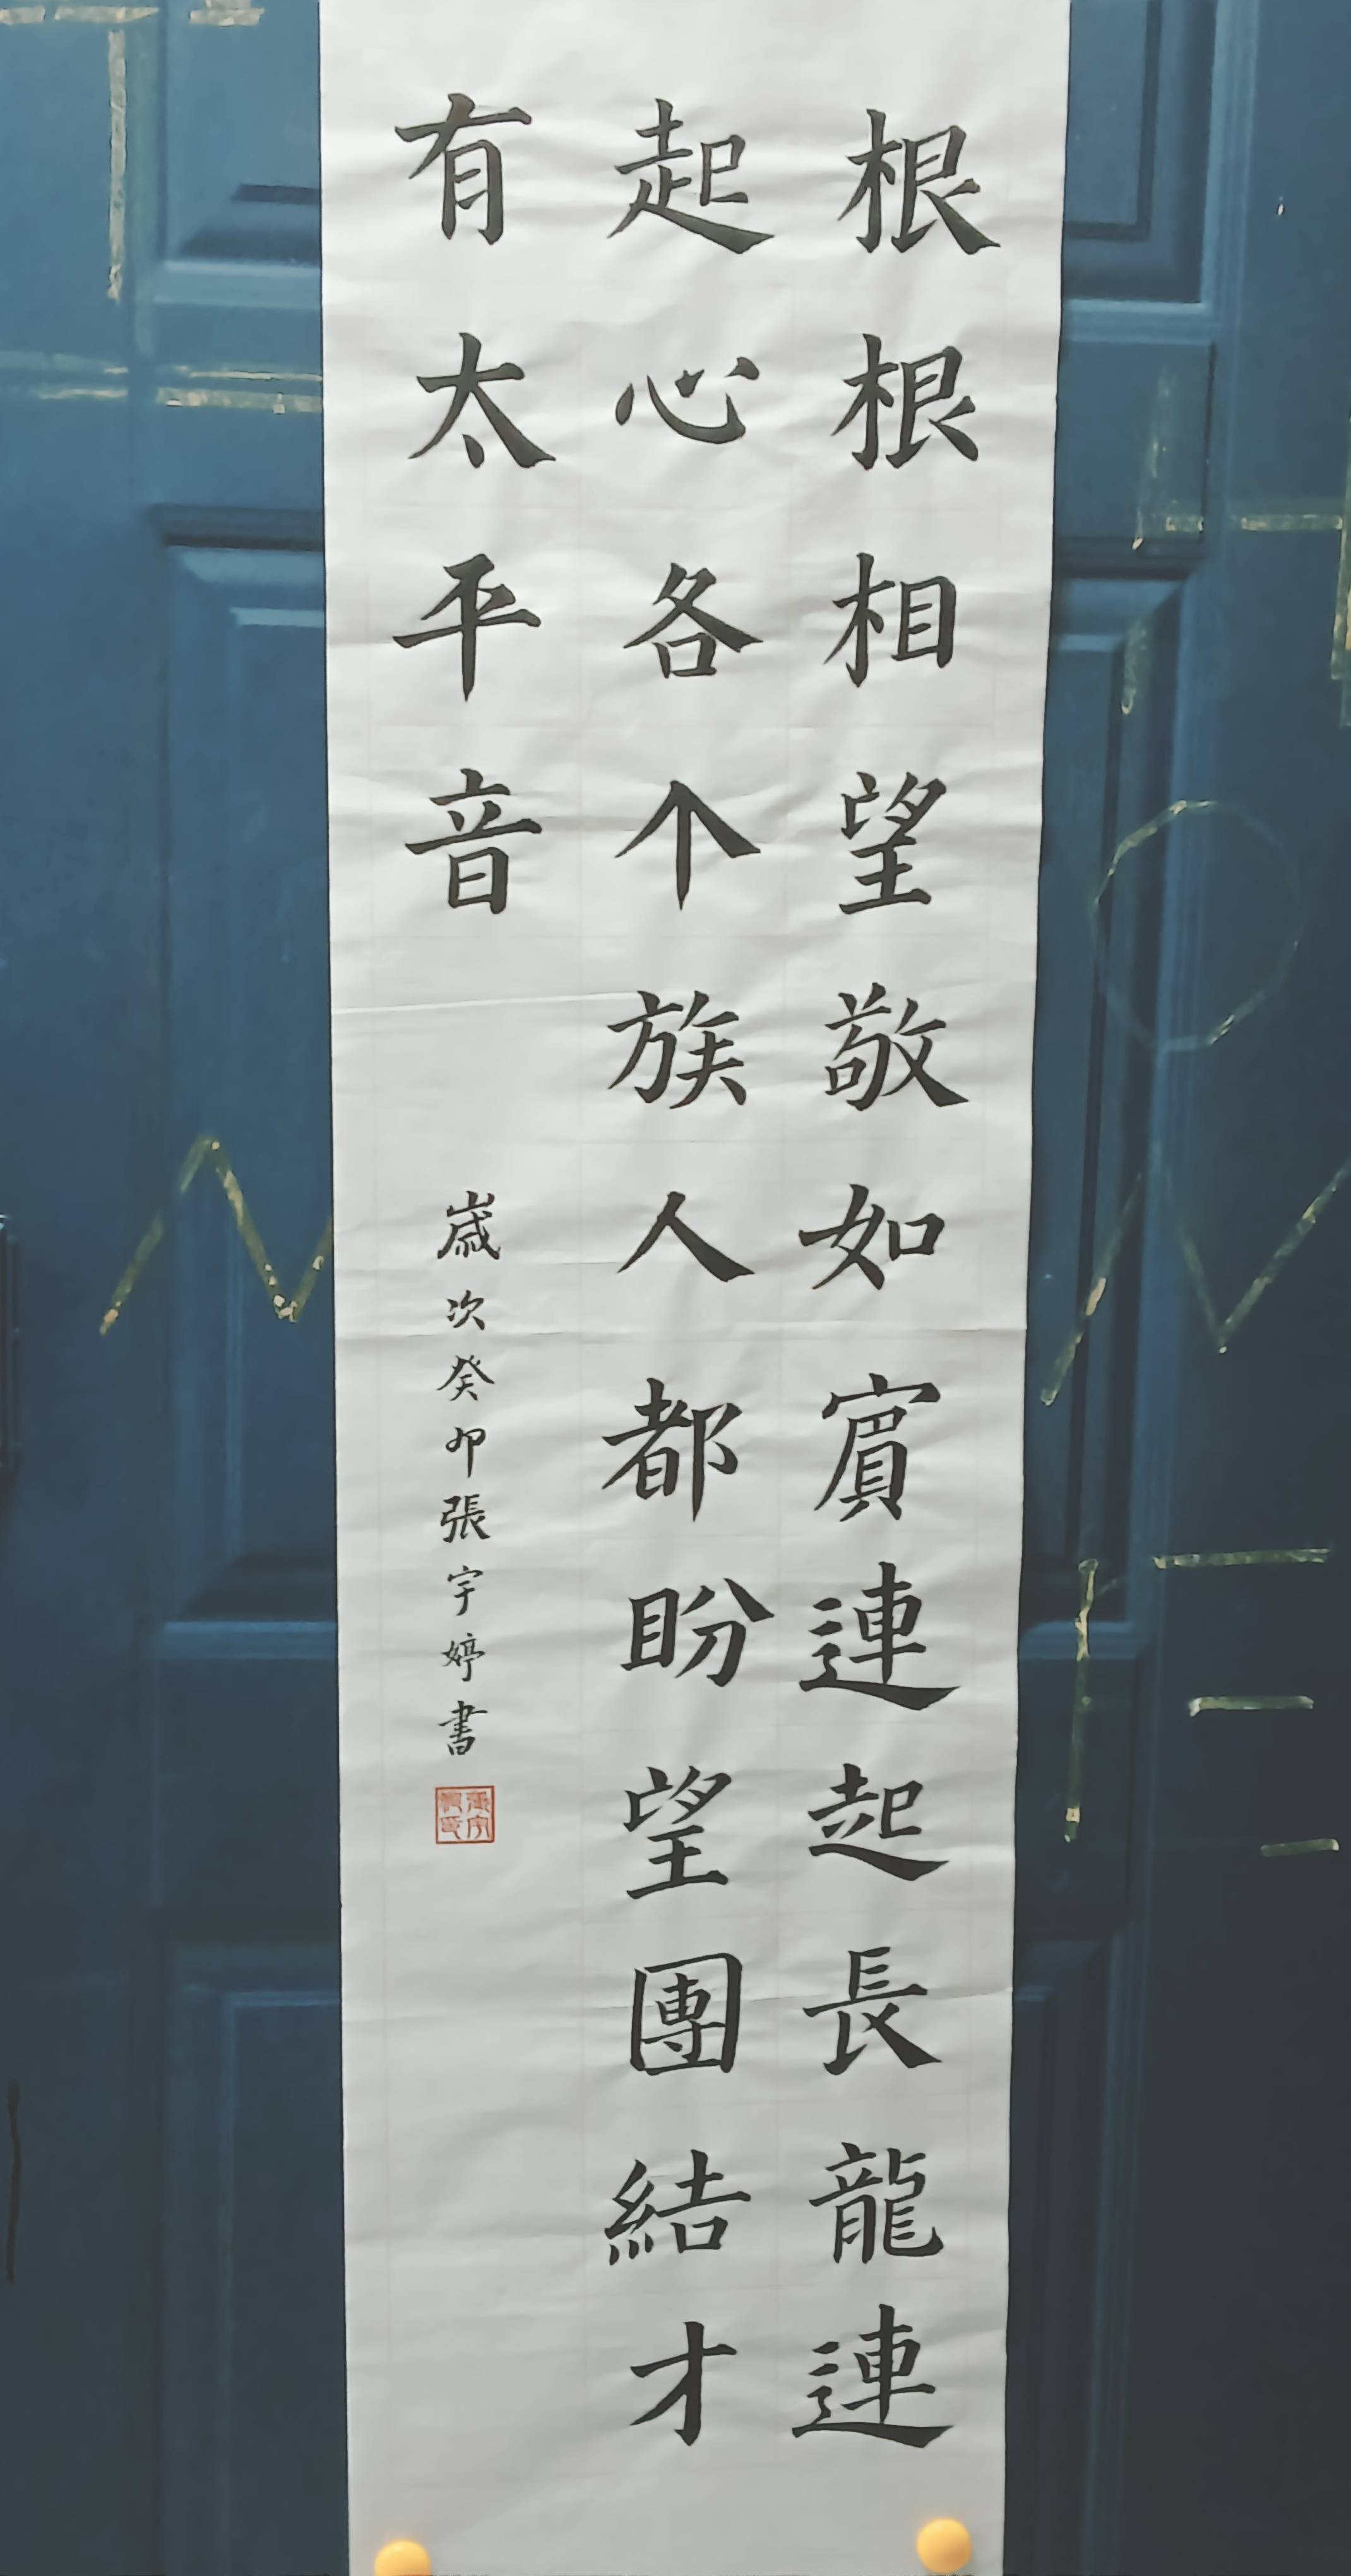 根根相望敬如賓連起長龍連
起心各个族人都盼望團結才
有太平音
歲次癸卯張宇婷書